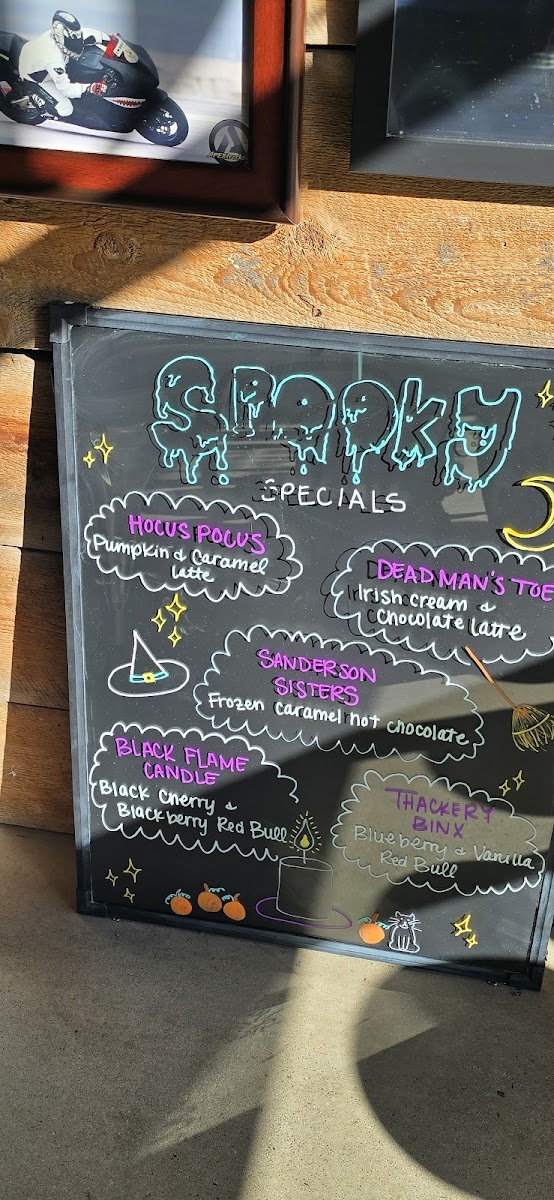 SPOOKY
SPECIALS
HOCUS POCUS
Pumpkin & Caramel
latte
DEADMAN'S TOE
Irish cream &
Chocolate latte
SANDERSON
SISTERS
Frozen caramel hot chocolate
BLACK FLAME
CANDLE
Black Cherry &
Blackberry Red Bull
THACKERY
BINX
Blueberry & Vanilla
Red Bull